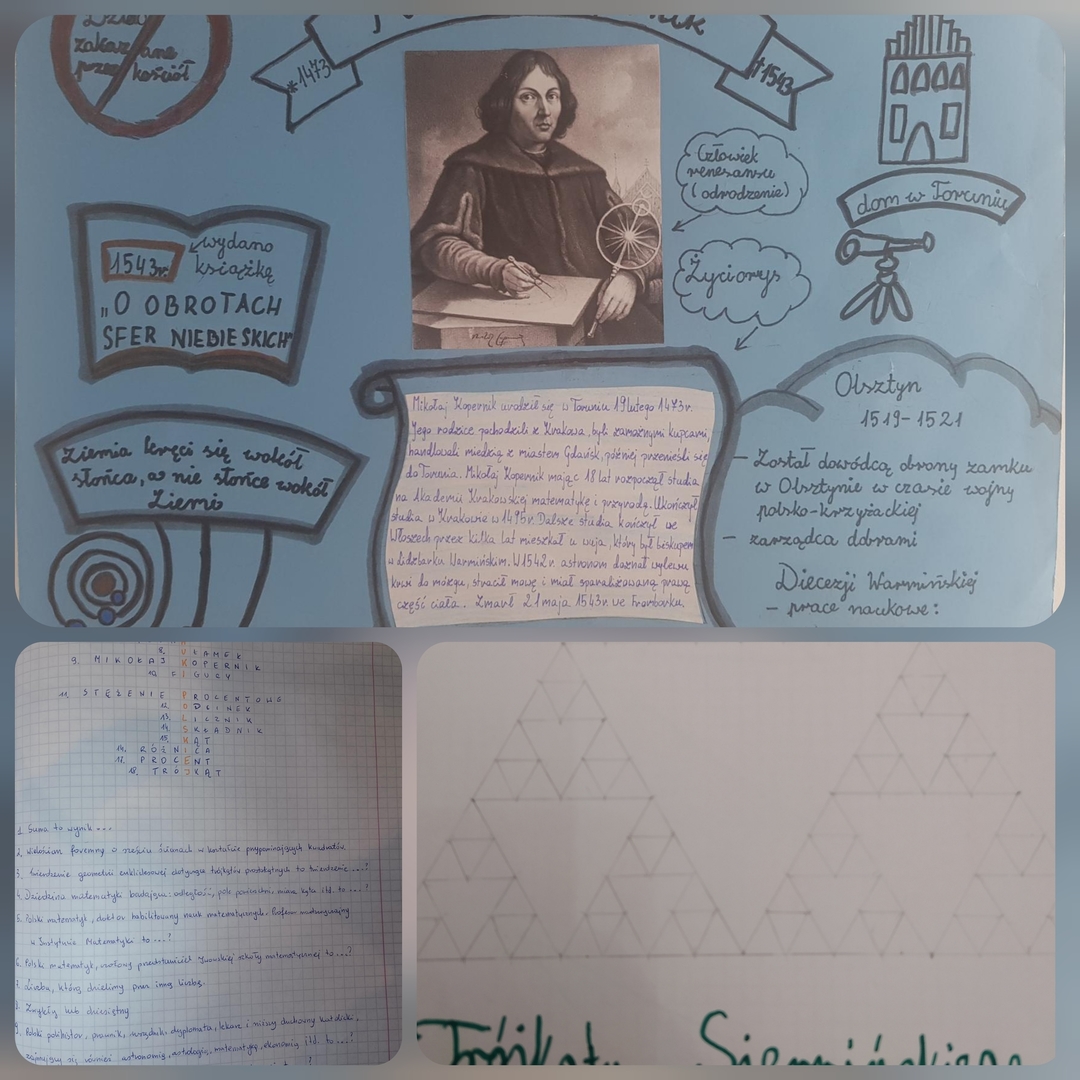 zakazane
przez kościół
*1473
†1543
Człowiek
renesansu
(odrodzenie)
dom w Toruniu
wydano
1543r.
książkę
„O OBROTACH
SFER NIEBIESKICH"
Życiorys
Ziemia kręci się wokół
słońca, a nie słońce wokół
Ziemi
Mikołaj Kopernik urodził się w Toruniu 19 lutego 1473r.
Jego rodzice pochodzili z Krakowa, byli zamożnymi kupcami,
handlowali miedzią z miastem Gdańsk, później przenieśli się
do Torunia. Mikołaj Kopernik mając 18 lat rozpoczął studia
na Akademii Krakowskiej matematykę i przyrodę. Ukończył
studia w Krakowie w 1495r. Dalsze studia kończył we
Włoszech przez kilka lat mieszkał u wuja, który był biskupem
w Lidzbarku Warmińskim. W 1542r. astronom doznał wylewu
krwi do mózgu, stracił mowę i miał sparaliżowaną prawą
część ciała. Zmarł 21 maja 1543r. we Fromborku.
Olsztyn
1519-1521
- Został dowódcą obrony zamku
w Olsztynie w czasie wojny
polsko-krzyżackiej
- zarządca dobrami
Diecezji Warmińskiej
- prace naukowe:
8. UŁAMEK
9. MIKOŁAJ KOPERNIK
10. FIGURY
11. STĘŻENIE PROCENTOWE
12. ODCINEK
13. LICZNIK
14. SKŁADNIK
15. KĄT
RÓŻNICA
PROCENT
18. TRÓJKĄT
1. Suma to wynik...
2. Wielościan foremny o sześciu ścianach w kształcie przypominających kwadratów.
3. Twierdzenie geometrii euklidesowej dotyczące trójkątów prostokątnych to twierdzenie ...?
4. Dziedzina matematyki badająca: odległość, pole powierzchni, miarę kąta itd. to ...?
5. Polski matematyk, doktor habilitowany nauk matematycznych. Profesor nadzwyczajny
w Instytucie Matematyki to ...?
6. Polski matematyk, czołowy przedstawiciel lwowskiej szkoły matematycznej to ...?
7. Liczba, którą dzielimy przez inną liczbę.
8. Zwykły lub dziesiętny
9. Polski polihistor, prawnik, urzędnik, dyplomata, lekarz i niższy duchowny katolicki,
zajmujący się również astronomią, astrologią, matematyką, ekonomią itd. to ...?
Trójkąty Sierpińskiego